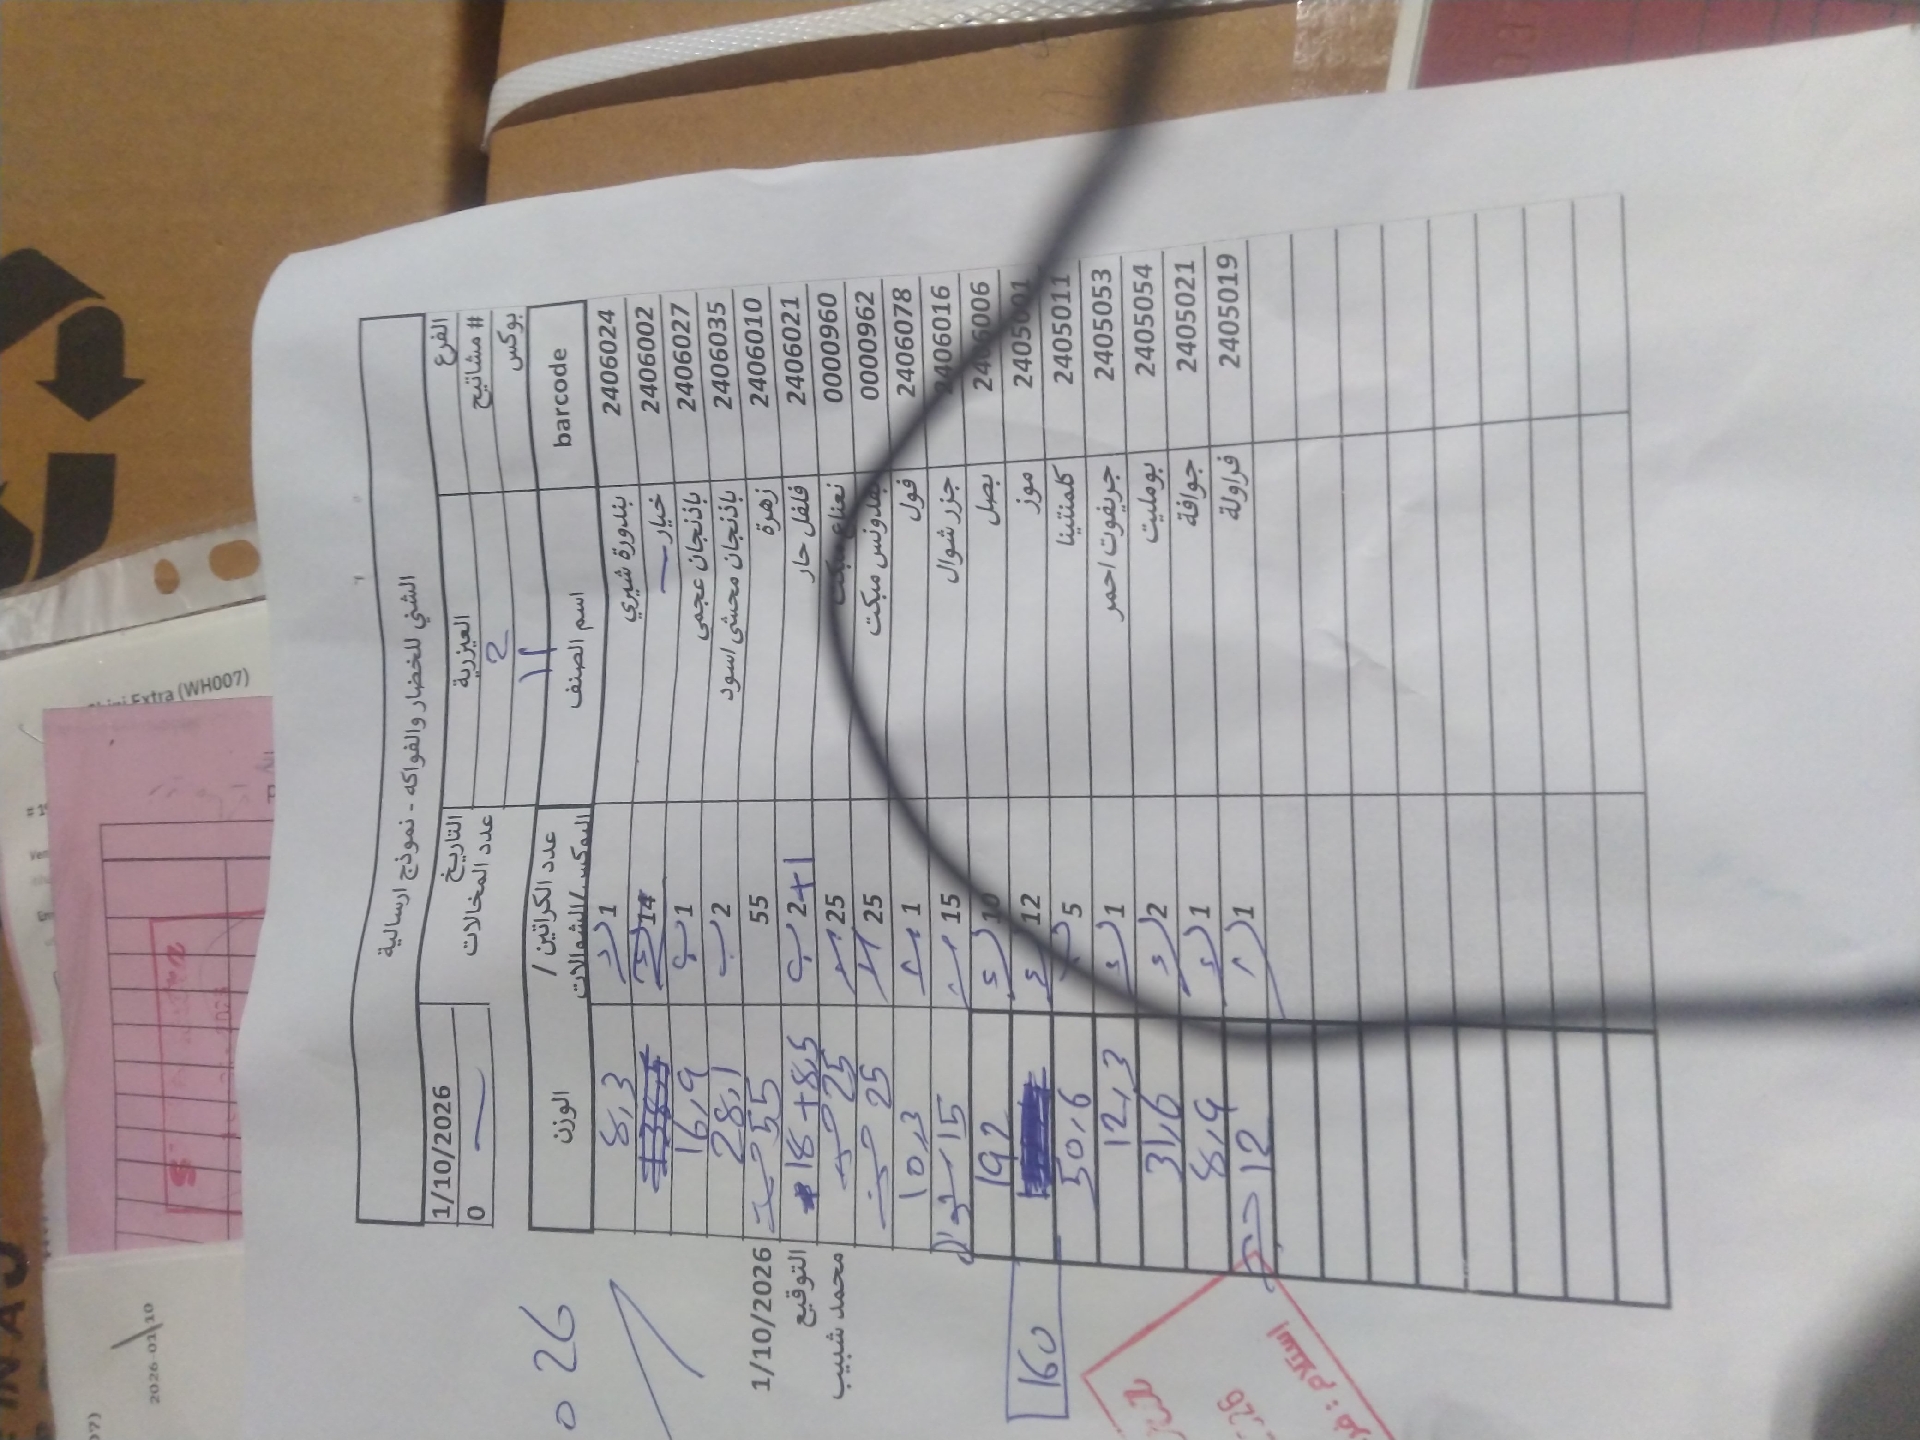 الشني للخضار والفواكه - نموذج ارسالية
الفرع العيزرية التاريخ 1/10/2026
# مشاتيح 2 عدد المخالات 0
بوكس 12
barcode اسم الصنف عدد الكراتين / البوكس/الشوالات الوزن
2406024 بندورة شيري 1 8,3
2406002 خيار 14 138,5
2406027 باذنجان عجمي 1 ب 16,9
2406035 باذنجان محشي اسود 2 ب 28,1
2406010 زهرة 55 55
2406021 فلفل حار 2+1 ب 18+8,5
00000960 نعناع مبكت 25 25
00000962 بقدونس مبكت 25 25
2406078 فول 1 10,3
2406016 جزر شوال 15 15 شوال
2406006 بصل 10 192
2405001 موز 12 160
2405011 كلمنتينا 5 50,6
2405053 جريفوت احمر 1 12,3
2405054 بوملیت 2 31,6
2405021 جوافة 1 8,9
2405019 فراولة 1 12
1/10/2026
التوقيع
محمد شبيب
026
استلام :
Extra (WH007)
2026-01-10